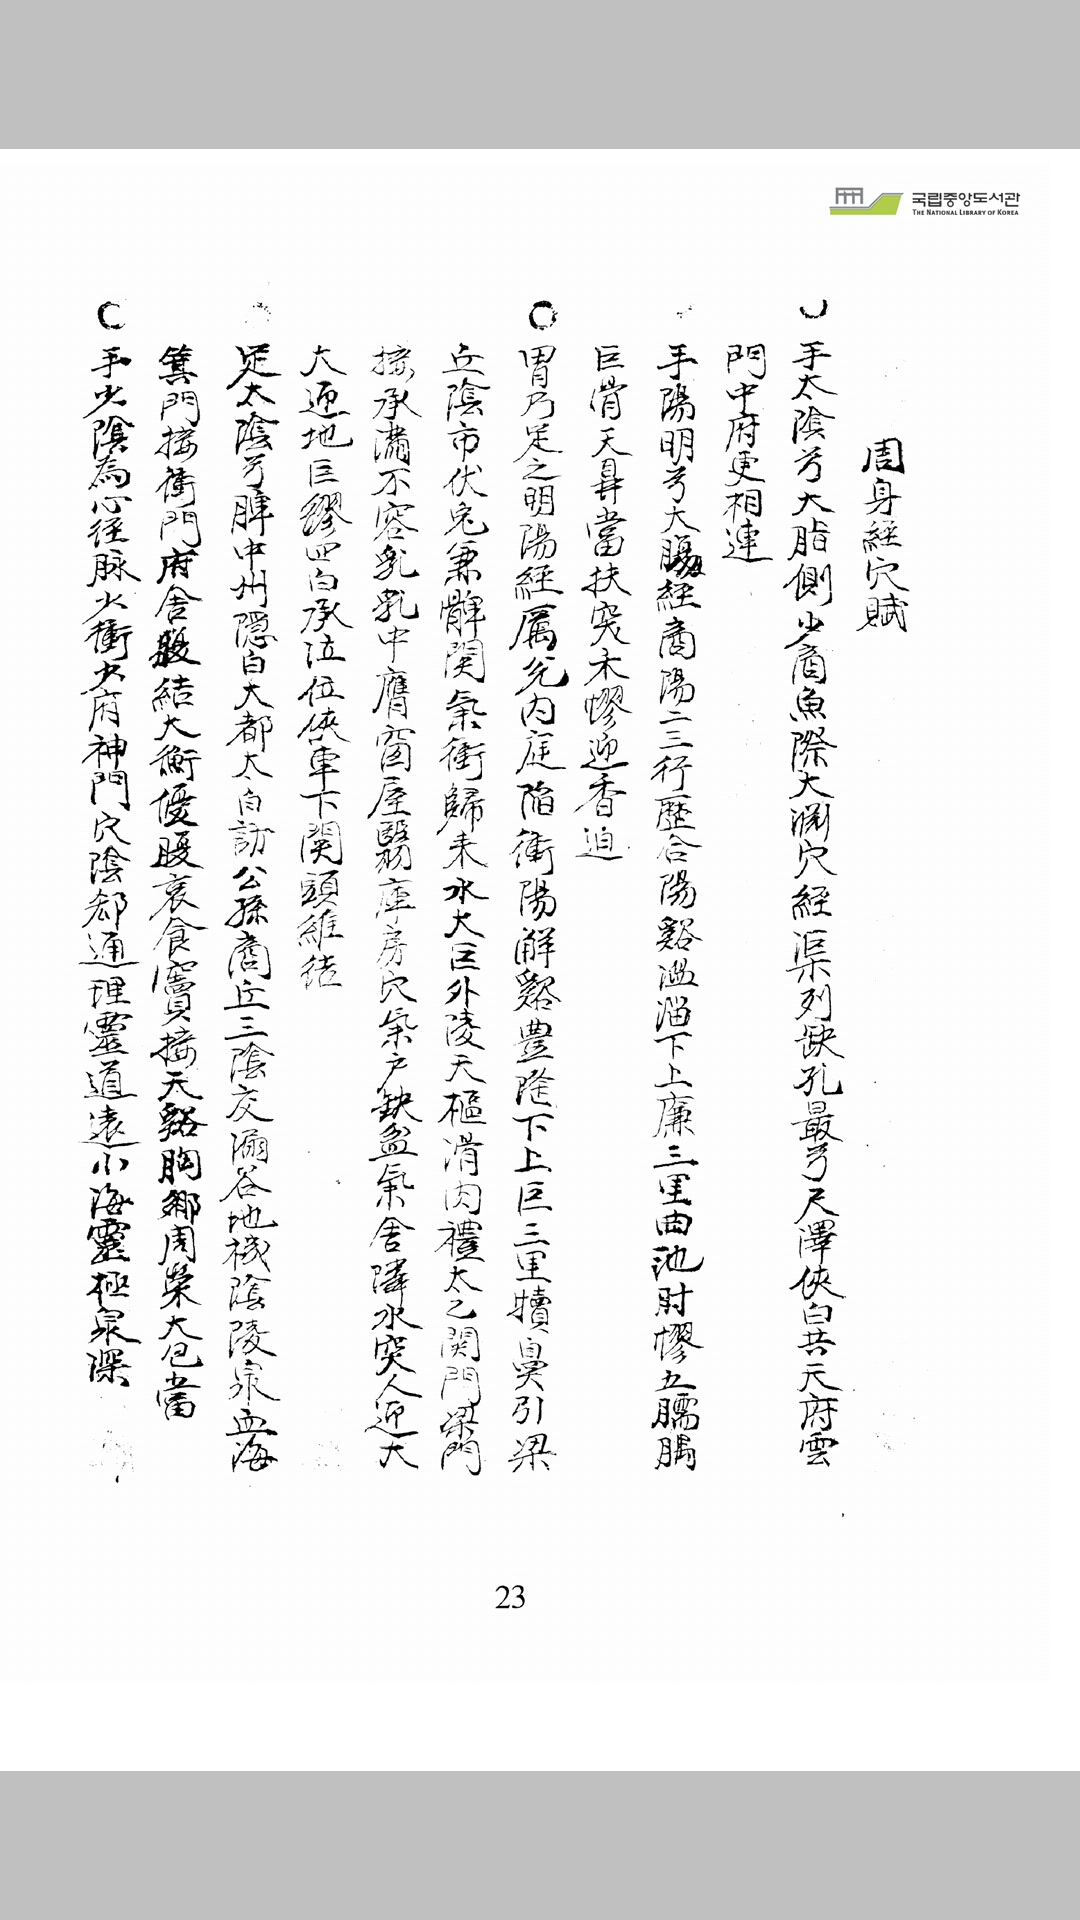 국립중앙도서관
THE NATIONAL LIBRARY OF KOREA
周身經穴賦
手太陰兮大脂側少商魚際大渊穴經渠列缺孔最兮尺澤俠白共天府雲
門中府更相連
手陽明兮大腸經商陽二三行歷合陽谿溫溜下上廉三里曲池肘髎五臑髃
巨骨天鼎當扶突禾髎迎香迫
胃乃足之明陽經厲兌內庭陷衝陽解谿豊隆下上巨三里犢鼻引梁
丘陰市伏兎兼髀関氣衝歸来水大巨外陵天樞滑肉禮太乙関門梁門
接承滿不容乳乳中膺窗屋翳庫房穴氣戶缺盆氣舍隣水突人迎大
大迎地巨髎四白承泣位俠車下関頭維結
足太陰兮脾中州隱白大都太白訪公孫商丘三陰交漏谷地機陰陵泉血海
箕門接衝門府舍腹結大衡優腹哀食竇接天谿胸鄉周榮大包當
手少陰為心径脉少衝少府神門穴陰郄通理靈道遠小海靈極泉深
23